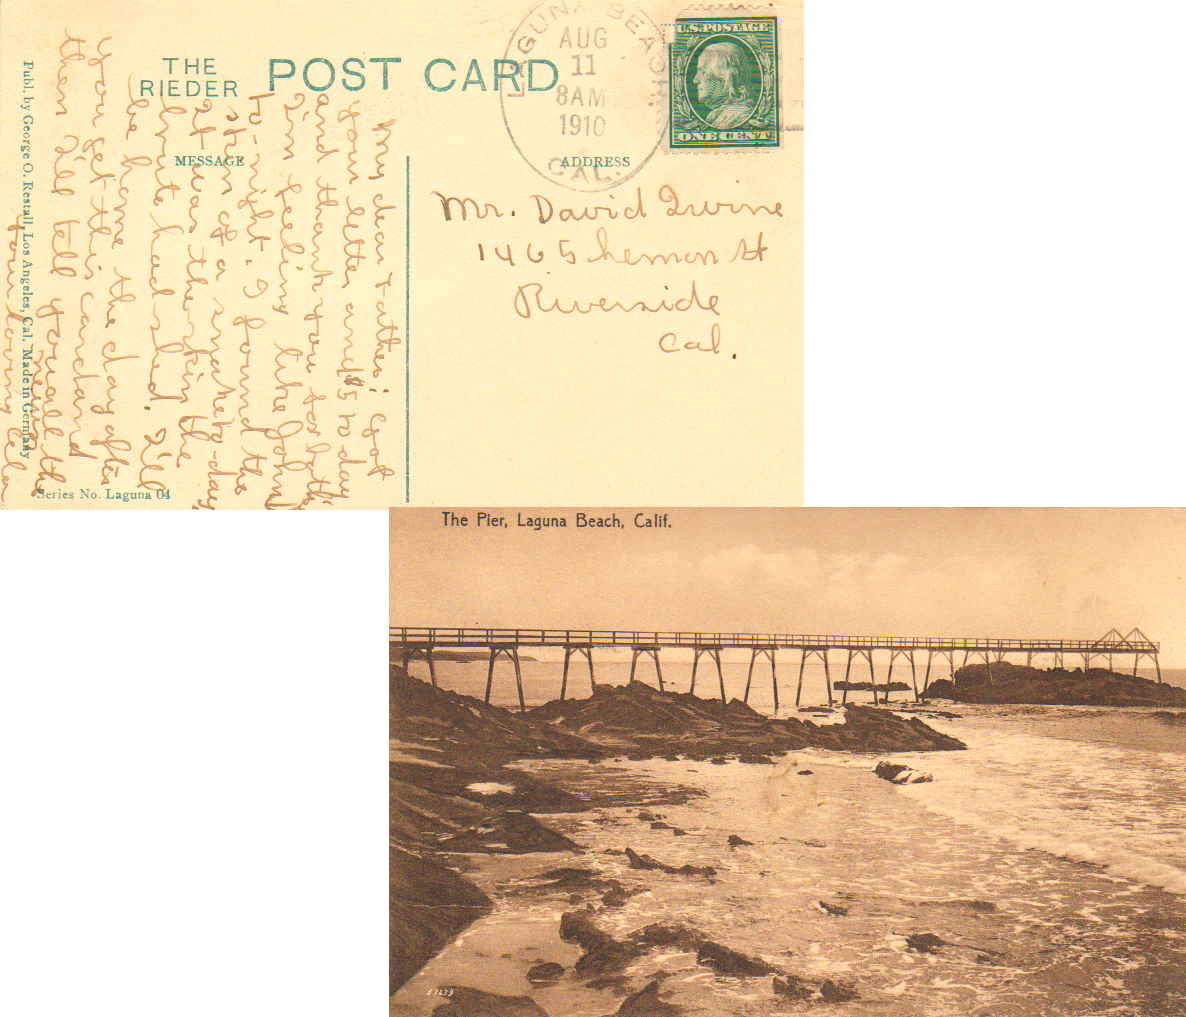 THE
RIEDER
POST CARD
LAGUNA BEACH
AUG
11
8AM
1910
CAL.
U.S. POSTAGE
ONE CENT
MESSAGE
ADDRESS
My dear Father: Got
your letter and $5 to-day
and thank you for both.
I'm feeling like John D
to-night. I found the
skin of a snake to-day
It was the skin the
brute had shed. I'll
be home the day after
you get this card and
then I'll tell you all the
news.
Your loving
Mr. David Irvine
1465 Lemon St
Riverside
Cal.
Publ. by George O. Restall, Los Angeles, Cal. Made in Germany
Series No. Laguna 04
The Pier, Laguna Beach, Calif.